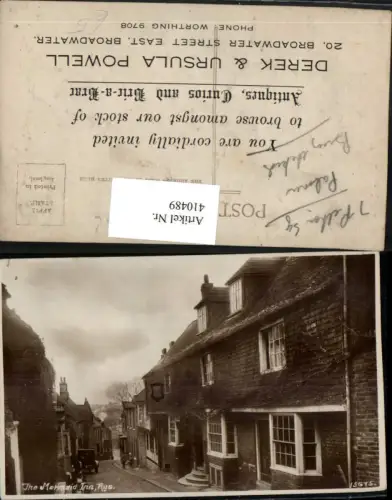 POST
Printed in
England.
Artikel Nr.
410489
You are cordially invited
to browse amongst our stock of
Antiques, Curios and Bric-a-Brac
DEREK & URSULA POWELL
20, BROADWATER STREET EAST, BROADWATER.
PHONE WORTHING 9708
The Mermaid Inn, Rye.